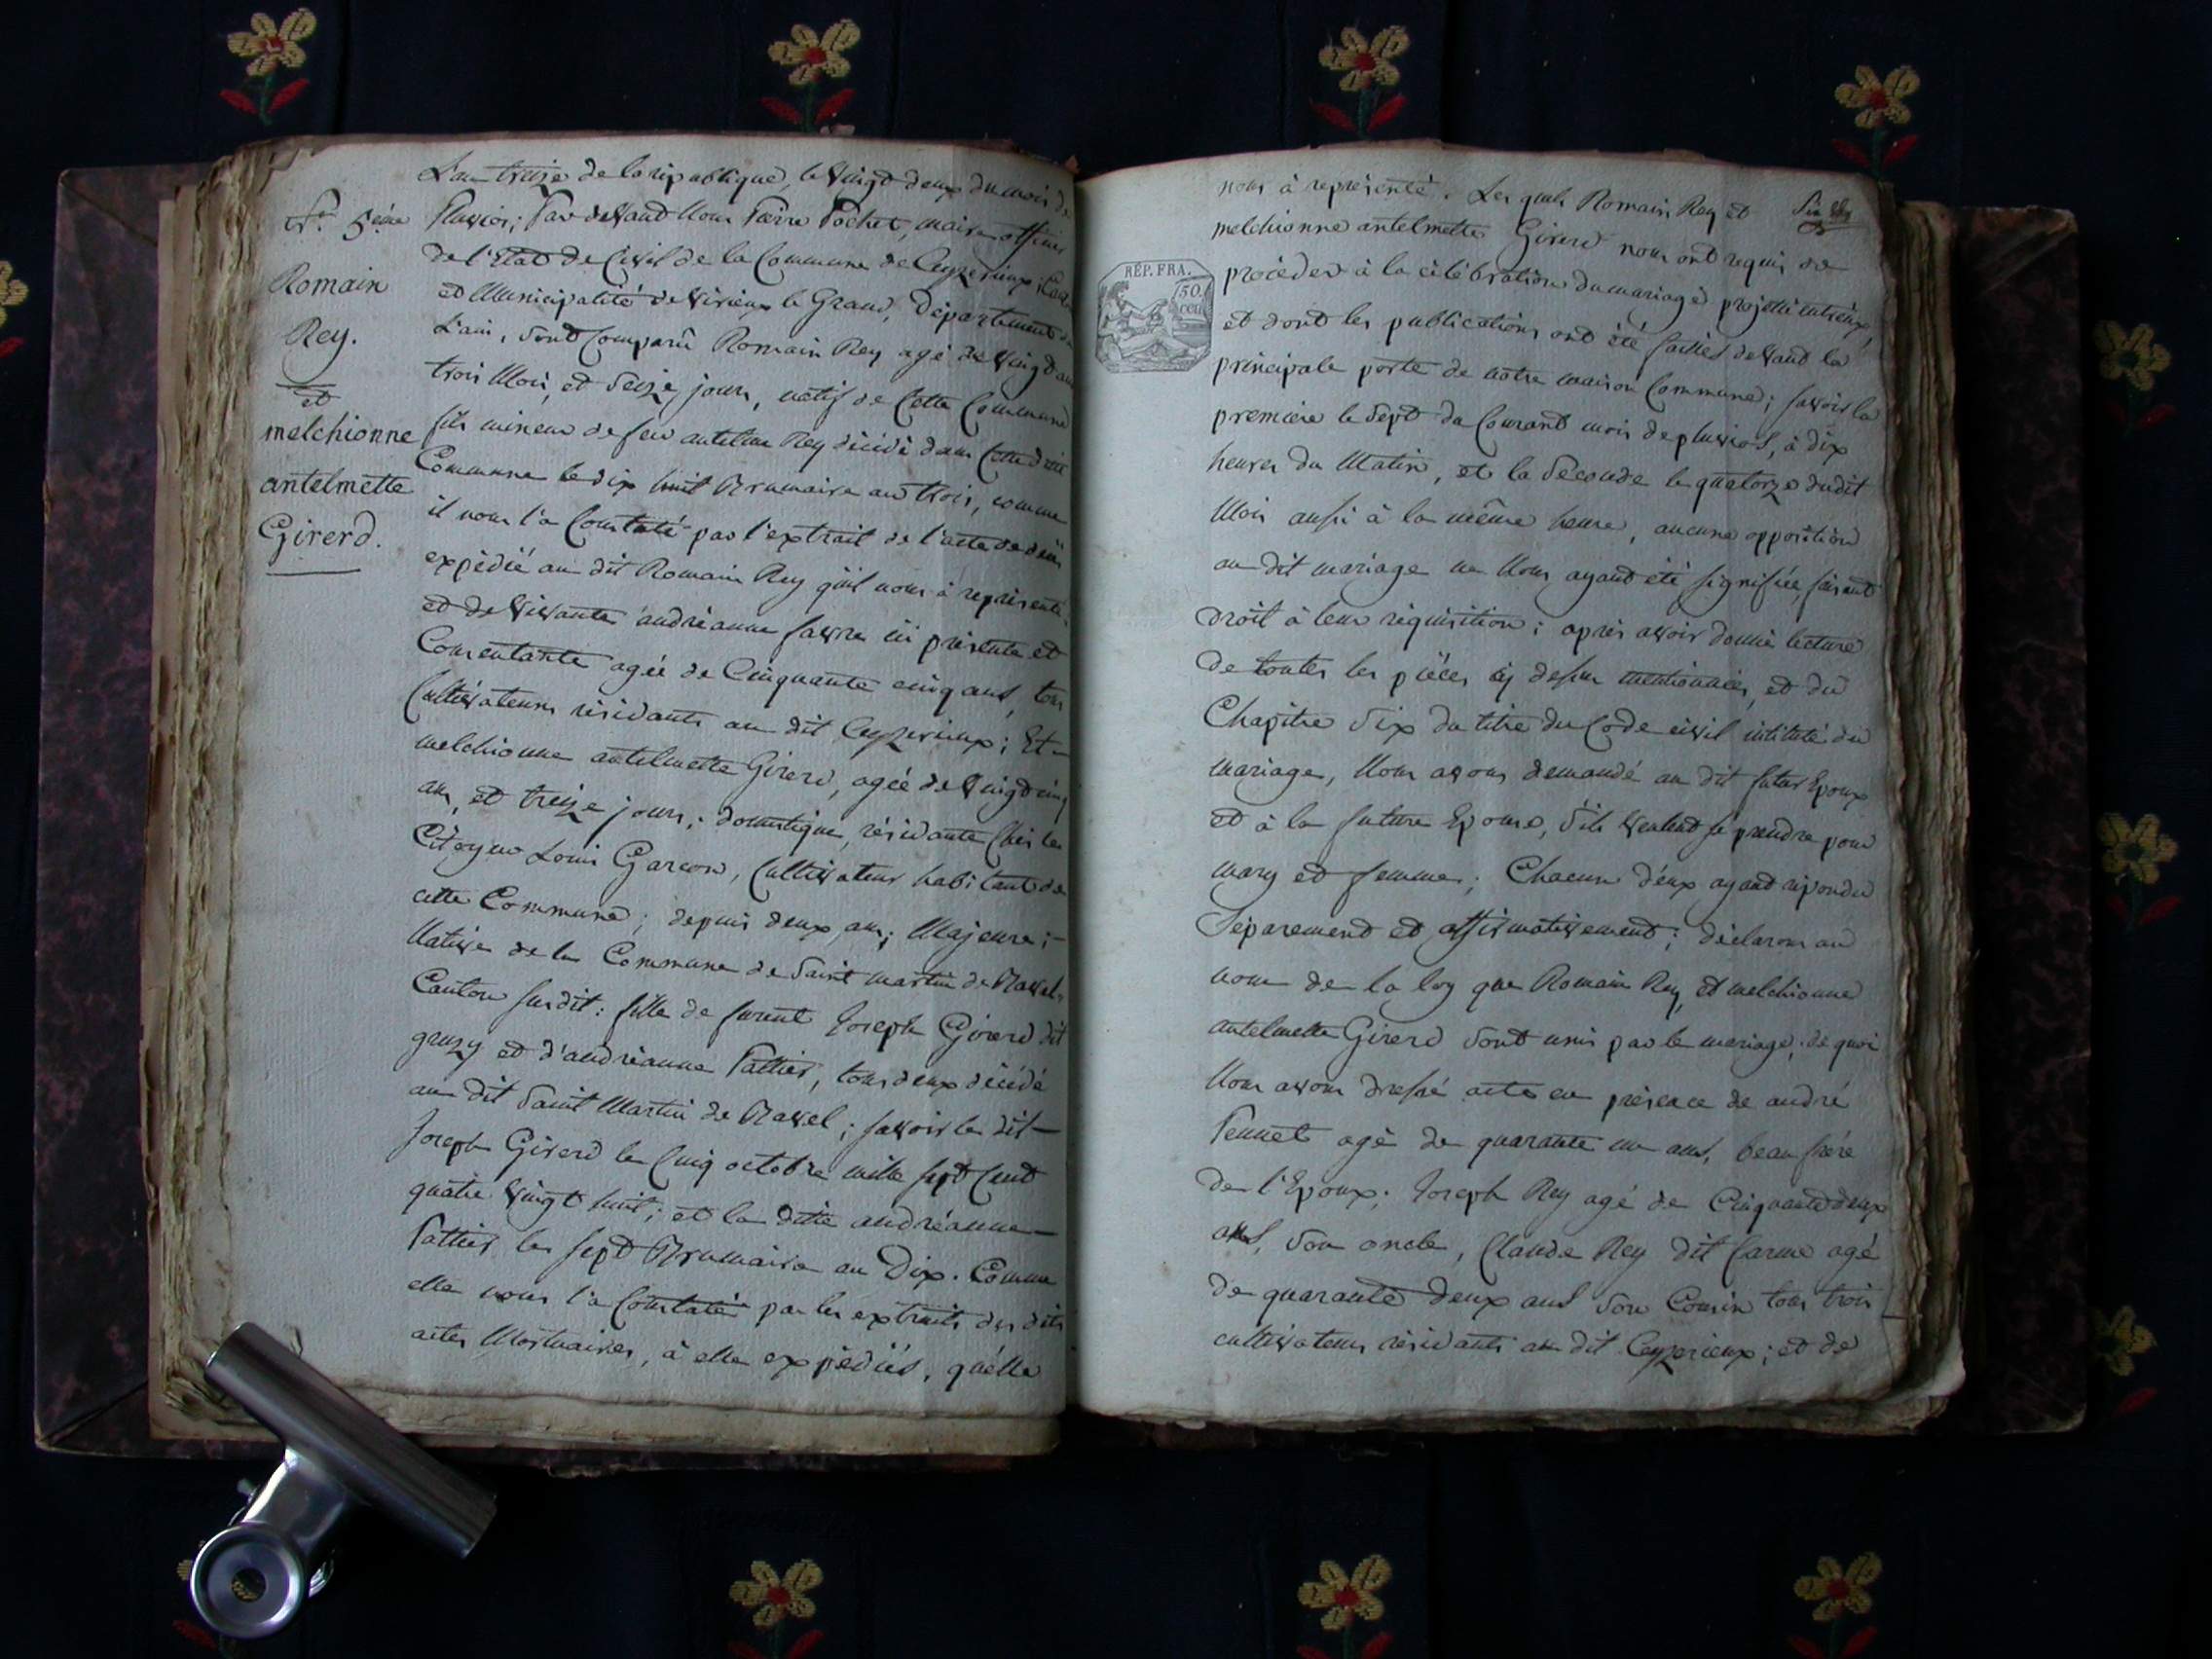 L'an treize de la republique, le Vingt deux du mois de
Nº. 5eme
Pluvios; Par devand Nous Pierre Pochet, maire officier
de l'Etat de Civil de la Commune de Ceyzerieux; Canton
et Municipalité de Virieux le Grand, Département de
L'ain, sont Comparû Romain Rey agé de Vingt ans
trois Mois, et Seize jours, natif de Cette Commune
fils mineur de feu antelme Rey décidé dans Cette dite
Commune le dix huit Brumaire an trois, comme
il nous l'a Constaté par l'extrait de l'acte de decès
expédié au dit Romain Rey qu'il nous à représenté,
et de Vivante andréanne favre ici présente et
Consentante agée de Cinquante cinq ans, tous
Cultivateurs résidants au dit Ceyzerieux; Et
melchionne antelmette Girerd, agée de Vingt cinq
ans, et treize jours; domestique, résidante Chés le
Citoyen Louis Garcon, Cultivateur habitant de
cette Commune; depuis deux ans; Majeure;
Native de la Commune de Saint martin de Bavel,
Canton susdit: fille de furent Joseph Girerd dit
gruzy et d'andréanne Pattier, tous deux décédé
au dit Saint Martin de Bavel; savoir le dit
Joseph Girerd le Cinq octobre mille sept Cent
quatre Vingt huit; et la ditte andréanne
Pattier le sept Brumaire an Dix. Comme
elle nous l'a Constaté par les extraits des dits
actes Mortuaires, à elle expédiés, qu'elle
Romain
Rey.
et
melchionne
antelmette
Girerd.
nous à représenté. Les quels Romain Rey et
melchionne antelmette Girerd nous ont requis de
procéder à la célébration du mariage projetté entreux,
et dont les publications ont été faittes devand la
principale porte de notre maison Commune; savoir la
premiere le Sept du Courant mois de pluvios, à dix
heures du Matin, et la Séconde le quatorze dudit
Mois aussi à la même heure, aucune opposition
au dit mariage ne Nous ayant été signifiée, faisant
droit à leur réquisition; après avoir donné lecture
de toutes les pièces cy dessus mentionnées, et du
Chapitre Six du titre du Code civil intitulé du
mariage, Nous avons demandé au dit futur Epoux
et à la future Epouse, s'ils veulent se prendre pour
mary et femme; Chacun d'eux ayant répondu
Séparement et affirmativement; déclarons au
nom de la loy que Romain Rey, et melchionne
antelmette Girerd sont unis par le mariage; de quoi
Nous avons dressé acte en présence de andré
Pennet agé de quarante un ans, beau frére
de l'Epoux; Joseph Rey agé de Cinquante deux
ans, son oncle, Claude Rey dit Carme agé
de quarante deux ans son Cousin tous trois
cultivateurs résidants au dit Ceyzerieux; et de
Six
RÉP. FRA.
50.
cen